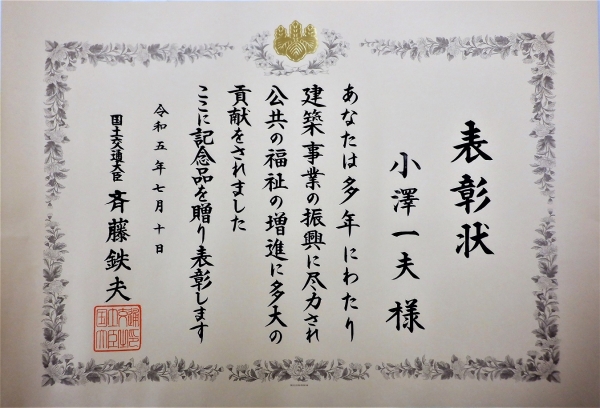 表彰状
小澤一夫 様
あなたは多年にわたり
建築事業の振興に尽力され
公共の福祉の増進に多大の
貢献をされました
ここに記念品を贈り表彰します
令和五年七月十日
国土交通大臣 斉藤鉄夫